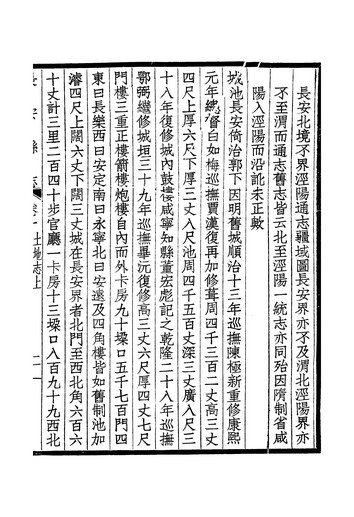 長安北境不界涇陽通志疆域圖長安界亦不及渭北涇陽界亦
不至渭而通志舊志皆云北至涇陽一統志亦同殆因隋制省咸
陽入涇陽而沿訛未正歟
城池長安倚治郭下因明舊城順治十三年巡撫陳極新重修康熙
元年總督白如梅巡撫賈漢復再加修葺周四千三百二丈高三丈
四尺上厚六尺下厚三丈八尺池周四千五百丈深三丈廣八尺三
十八年復修城內鼓樓咸寧知縣董宏彪記之乾隆二十八年巡撫
鄂弼繼修城垣三十九年巡撫畢沅復修高三丈六尺厚四丈七尺
門樓三重正樓箭樓炮樓自內而外卡房九十垜口五千七百門四
東曰長樂西曰安定南曰永寧北曰安遠及四角樓皆如舊制池加
濬四尺上闊六丈下闊三丈城在長安界者北門至西北角六百六
十丈計三里二百四十步官廳一卡房十三垜口八百九十九西北
長安縣志 卷十 土地志上